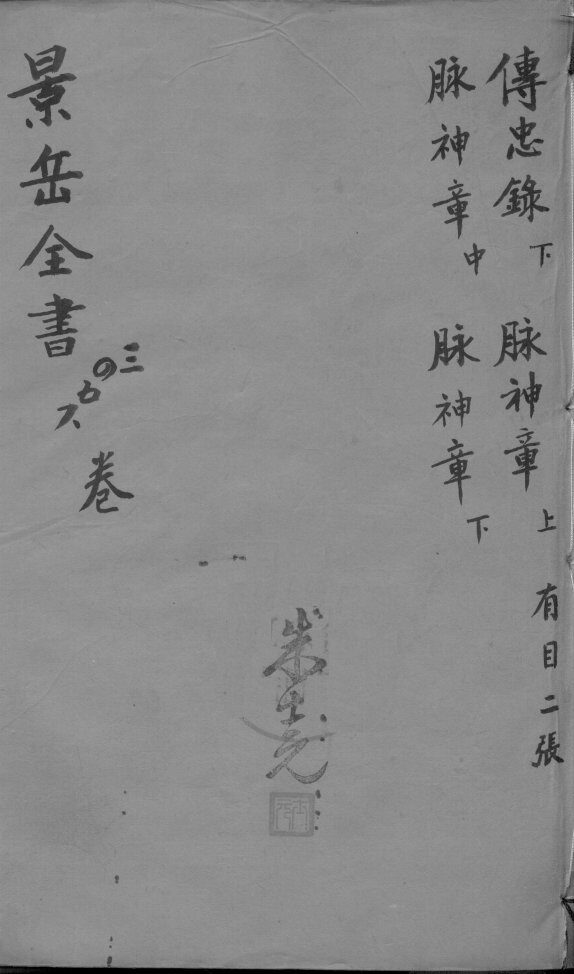 傳忠錄下 脉神章上 有目二張
脉神章中 脉神章下
朱
景岳全書 三の〥〦卷